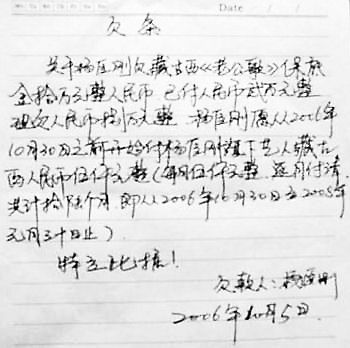 Date
欠条
关于杨臣刚欠藏古西《老公歌》保底
金拾万元整人民币 已付人民币贰万元整
现欠人民币捌万元整 杨臣刚愿从2006年
10月30日之前开始付杨臣刚旗下艺人藏古
西人民币伍仟元整(每月伍仟元整 逐月付清
共计拾陆个月 即从2006年10月30日至2008年
元月三十日止)
特立此据!
欠款人:杨臣刚
2006年10月5日